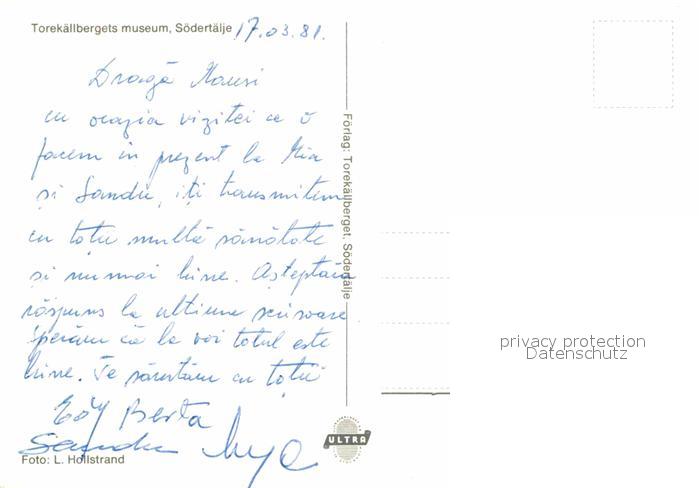 Torekällbergets museum, Södertälje 17.03.81.
Dragă Hansi
cu ocazia vizitei ce o
facem în prezent la Mia
și Sandu, iți transmitem
cu toții multă sănătate
și numai bine. Așteptăm
răspuns la ultima scrisoare
sperăm că la voi totul este
bine. Te sărutăm cu toții
Berta
Sandu
Foto: L. Hollstrand
Förlag: Torekällberget, Södertälje
ULTRA
privacy protection
Datenschutz